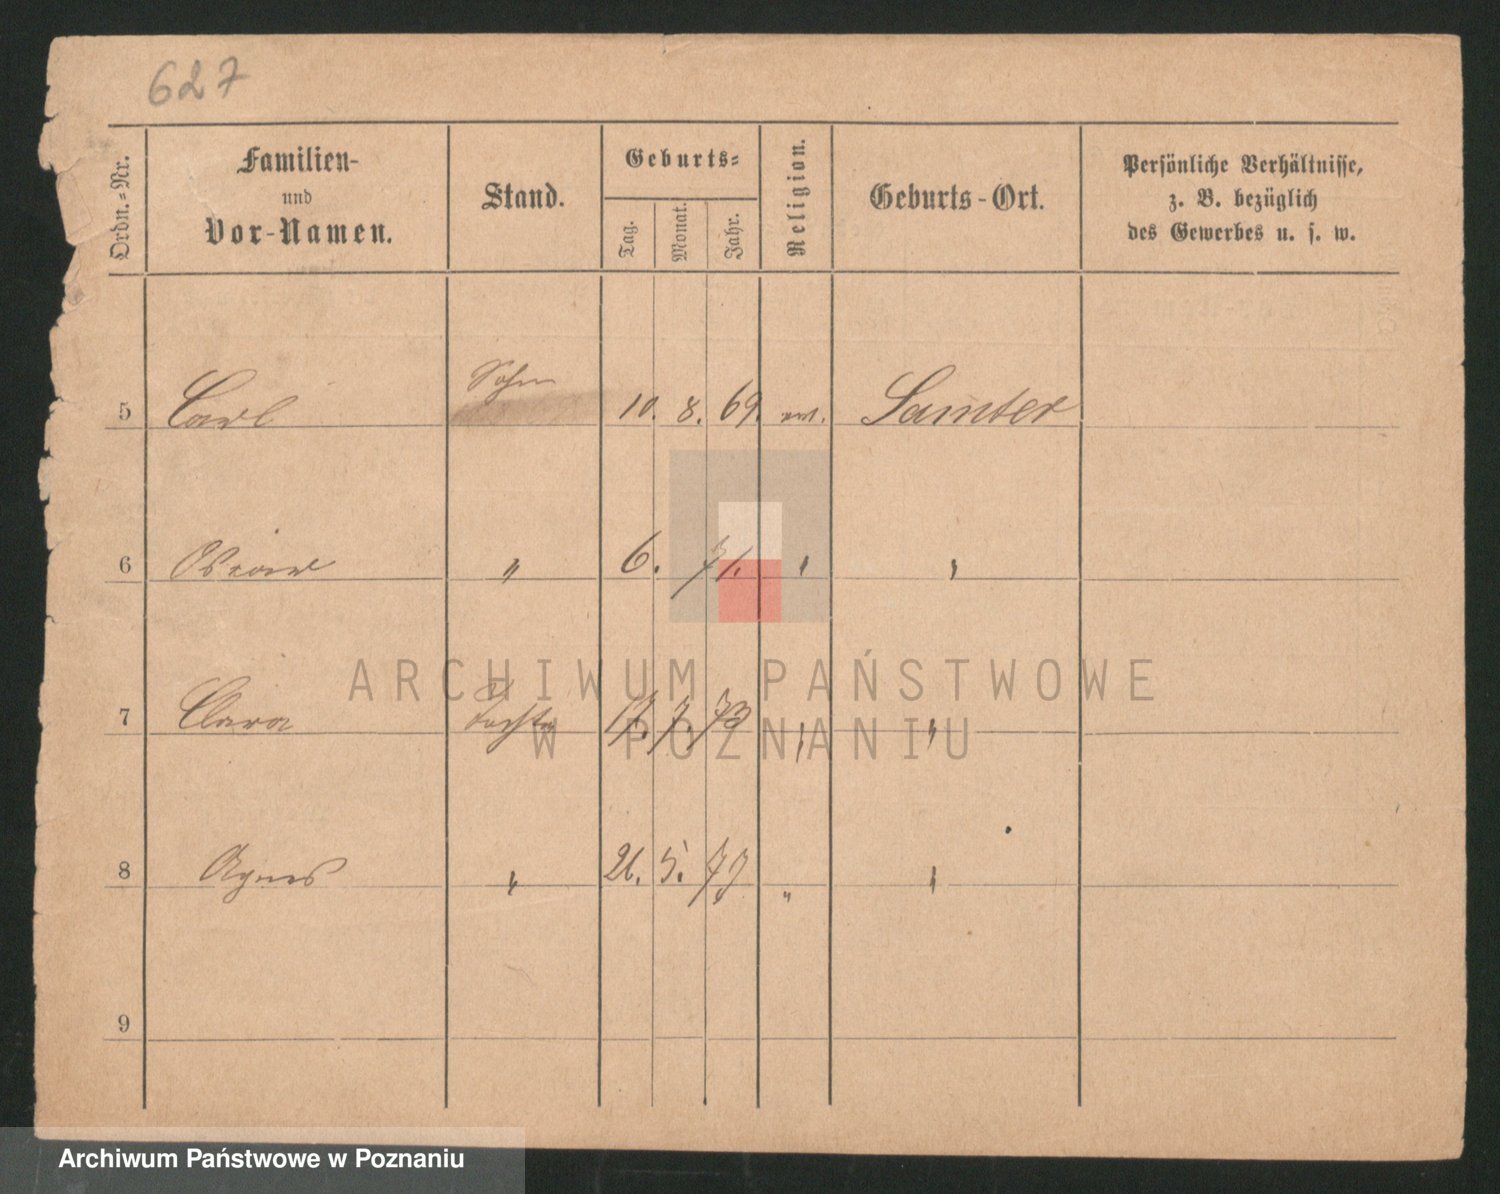 627
Ordn.-Nr.
Familien-
und
Vor-Namen.
Stand.
Geburts-
Tag.
Monat.
Jahr.
Religion.
Geburts-Ort.
Persönliche Verhältnisse,
z. B. bezüglich
des Gewerbes u. s. w.
Sohn
5 Carl 10. 8. 69. Samter
6 " 6. 71. " "
7 Clara Tochter 17. 7. 73 " "
8 Agnes " 21. 5. 77 " "
9
ARCHIWUM PAŃSTWOWE
W POZNANIU
Archiwum Państwowe w Poznaniu